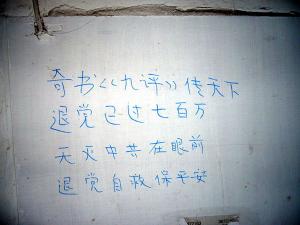 奇书《九评》传天下
退党已过七百万
天灭中共在眼前
退党自救保平安